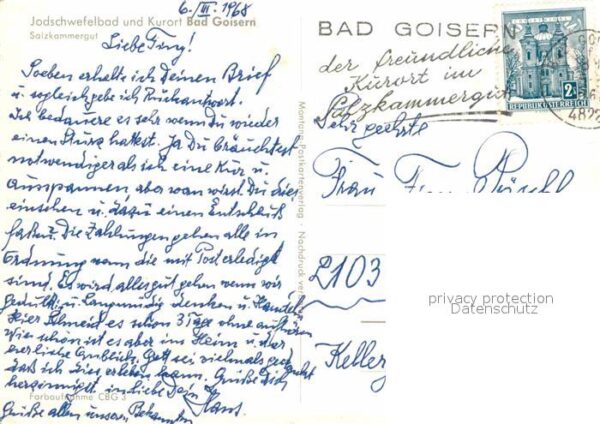 6./III. 1968
Jodschwefelbad und Kurort Bad Goisern
Salzkammergut
Liebe
Soeben erhalte ich Deinen Brief
u. sogleich gebe ich Rückantwort.
Ich bedauere es sehr wenn Du wieder
einen Sturz hattest. Ja Du bräuchtest
notwendiger als ich eine Kur u.
Ausspannen aber wann wirst Du dies
einsehen u. dazu einen Entschluß
fassen? Die Zahlungen gehen alle in
Ordnung wenn die mit Post erledigt
sind. Es wird alles gut gehen wenn wir
Geduld u. Langmütig denken u. handeln.
Hier schneit es schon 3 Tage ohne aufhören
Wie schön ist es aber im Heim u. der
herrliche Ausblick. Gott sei vielmals gedankt
daß ich dies erleben kann. Grüße Dich
herzinnigst in Liebe Dein Hans.
Grüße allen unseren Bekannten
Farbaufnahme CBG 3
Montana-Postkartenverlag · Nachdruck ver
BAD GOISERN
der freundliche
Kurort im
Salzkammergut
2
REPUBLIK ÖSTERREICH
4822
Sehr geehrte
Frau
2103
Keller
privacy protection
Datenschutz